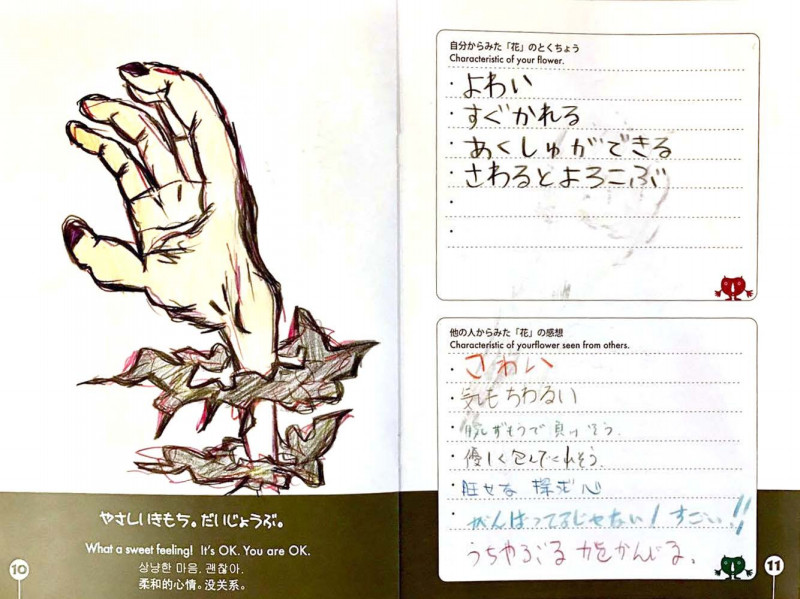 やさしいきもち。だいじょうぶ。
What a sweet feeling! It's OK. You are OK.
상냥한 마음, 괜찮아.
柔和的心情。没关系。
10
自分からみた「花」のとくちょう
Characteristic of your flower.
・よわい
・すぐかれる
・あくしゅができる
・さわるとよろこぶ
他の人からみた「花」の感想
Characteristic of yourflower seen from others.
・こわい
・気もちわるい
・腕ずもうで負けそう.
・優しく包んでくれそう.
・旺せな 探求心
・がんばってるじゃない！すごい!!
うちやぶる 力をかんじる。
11